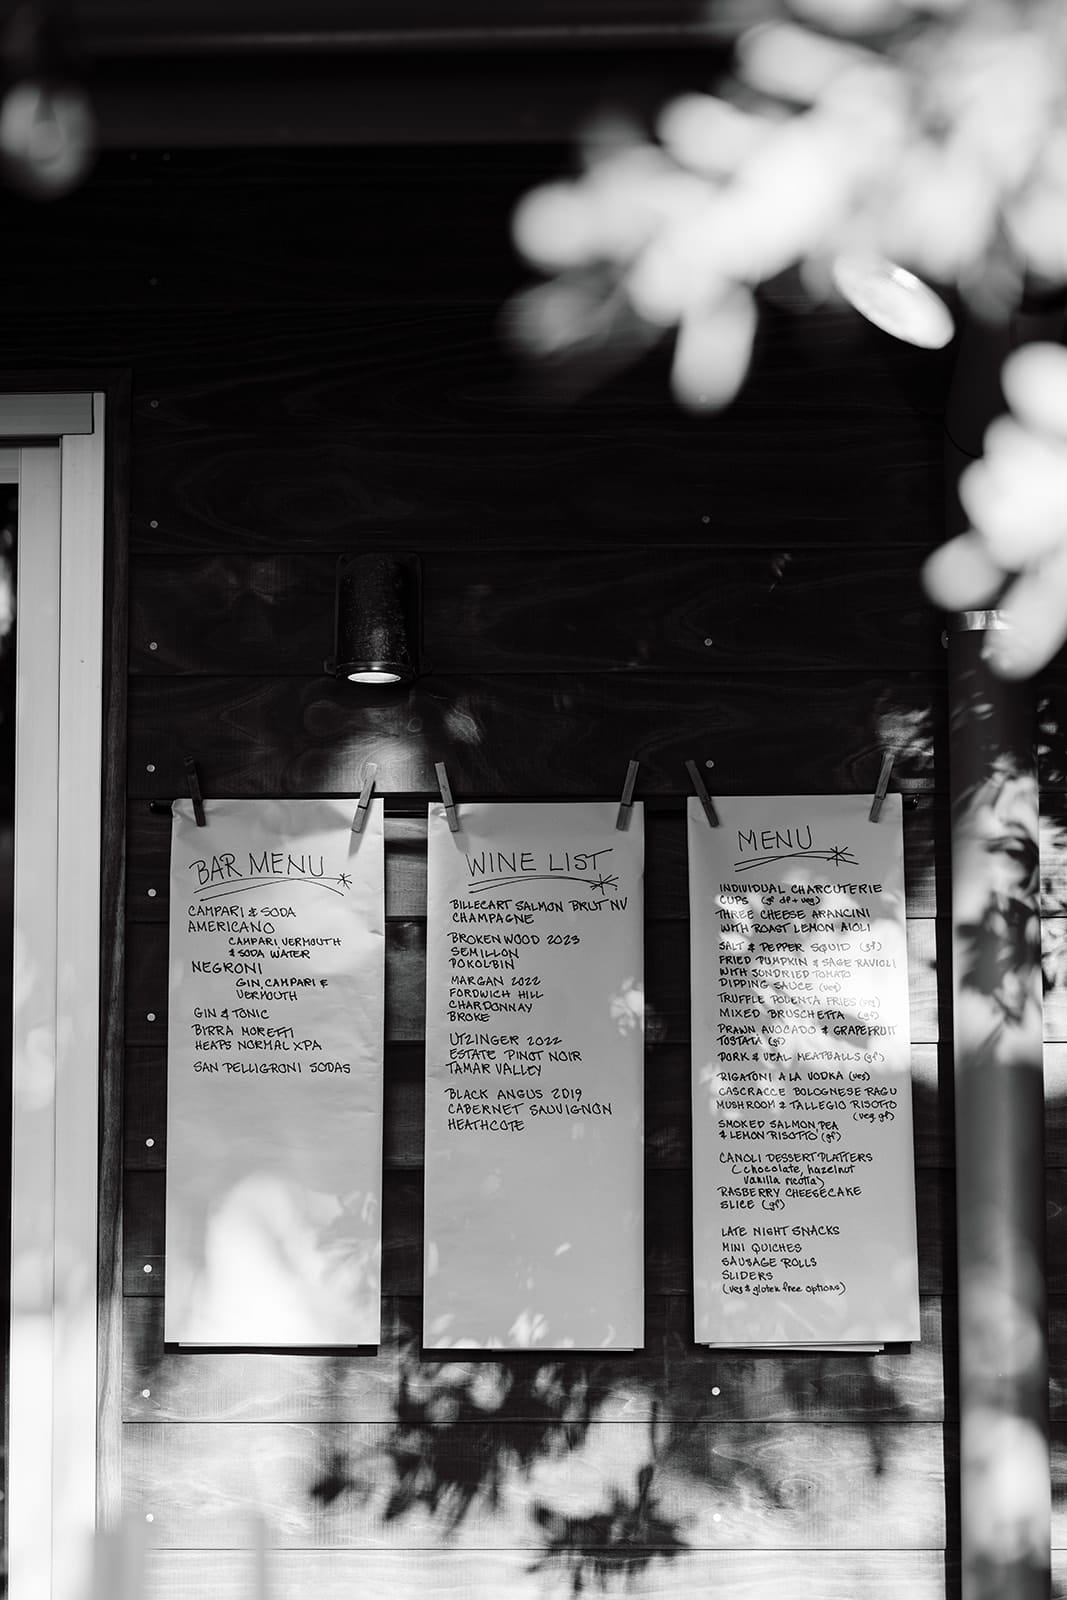 BAR MENU
CAMPARI & SODA
AMERICANO
CAMPARI VERMOUTH
& SODA WATER
NEGRONI
GIN, CAMPARI &
VERMOUTH
GIN & TONIC
BIRRA MORETTI
HEAPS NORMAL XPA
SAN PELLIGRONI SODAS
WINE LIST
BILLECART SALMON BRUT NV
CHAMPAGNE
BROKENWOOD 2023
SEMILLON
POKOLBIN
MARGAN 2022
FORDWICH HILL
CHARDONNAY
BROKE
UTZINGER 2022
ESTATE PINOT NOIR
TAMAR VALLEY
BLACK ANGUS 2019
CABERNET SAUVIGNON
HEATHCOTE
MENU
INDIVIDUAL CHARCUTERIE
CUPS (gf df + veg)
THREE CHEESE ARANCINI
WITH ROAST LEMON AIOLI
SALT & PEPPER SQUID (gf)
FRIED PUMPKIN & SAGE RAVIOLI
WITH SUNDRIED TOMATO
DIPPING SAUCE (veg)
TRUFFLE POLENTA FRIES (veg)
MIXED BRUSCHETTA (gf)
PRAWN AVOCADO & GRAPEFRUIT
TOSTATA (gf)
PORK & VEAL MEATBALLS (gf)
RIGATONI A LA VODKA (veg)
CASCRACCE BOLOGNESE RAGU
MUSHROOM & TALLEGIO RISOTTO
(veg gf)
SMOKED SALMON, PEA
& LEMON RISOTTO (gf)
CANOLI DESSERT PLATTERS
(chocolate, hazelnut
vanilla ricotta)
RASBERRY CHEESECAKE
SLICE (gf)
LATE NIGHT SNACKS
MINI QUICHES
SAUSAGE ROLLS
SLIDERS
(veg & gluten free options)